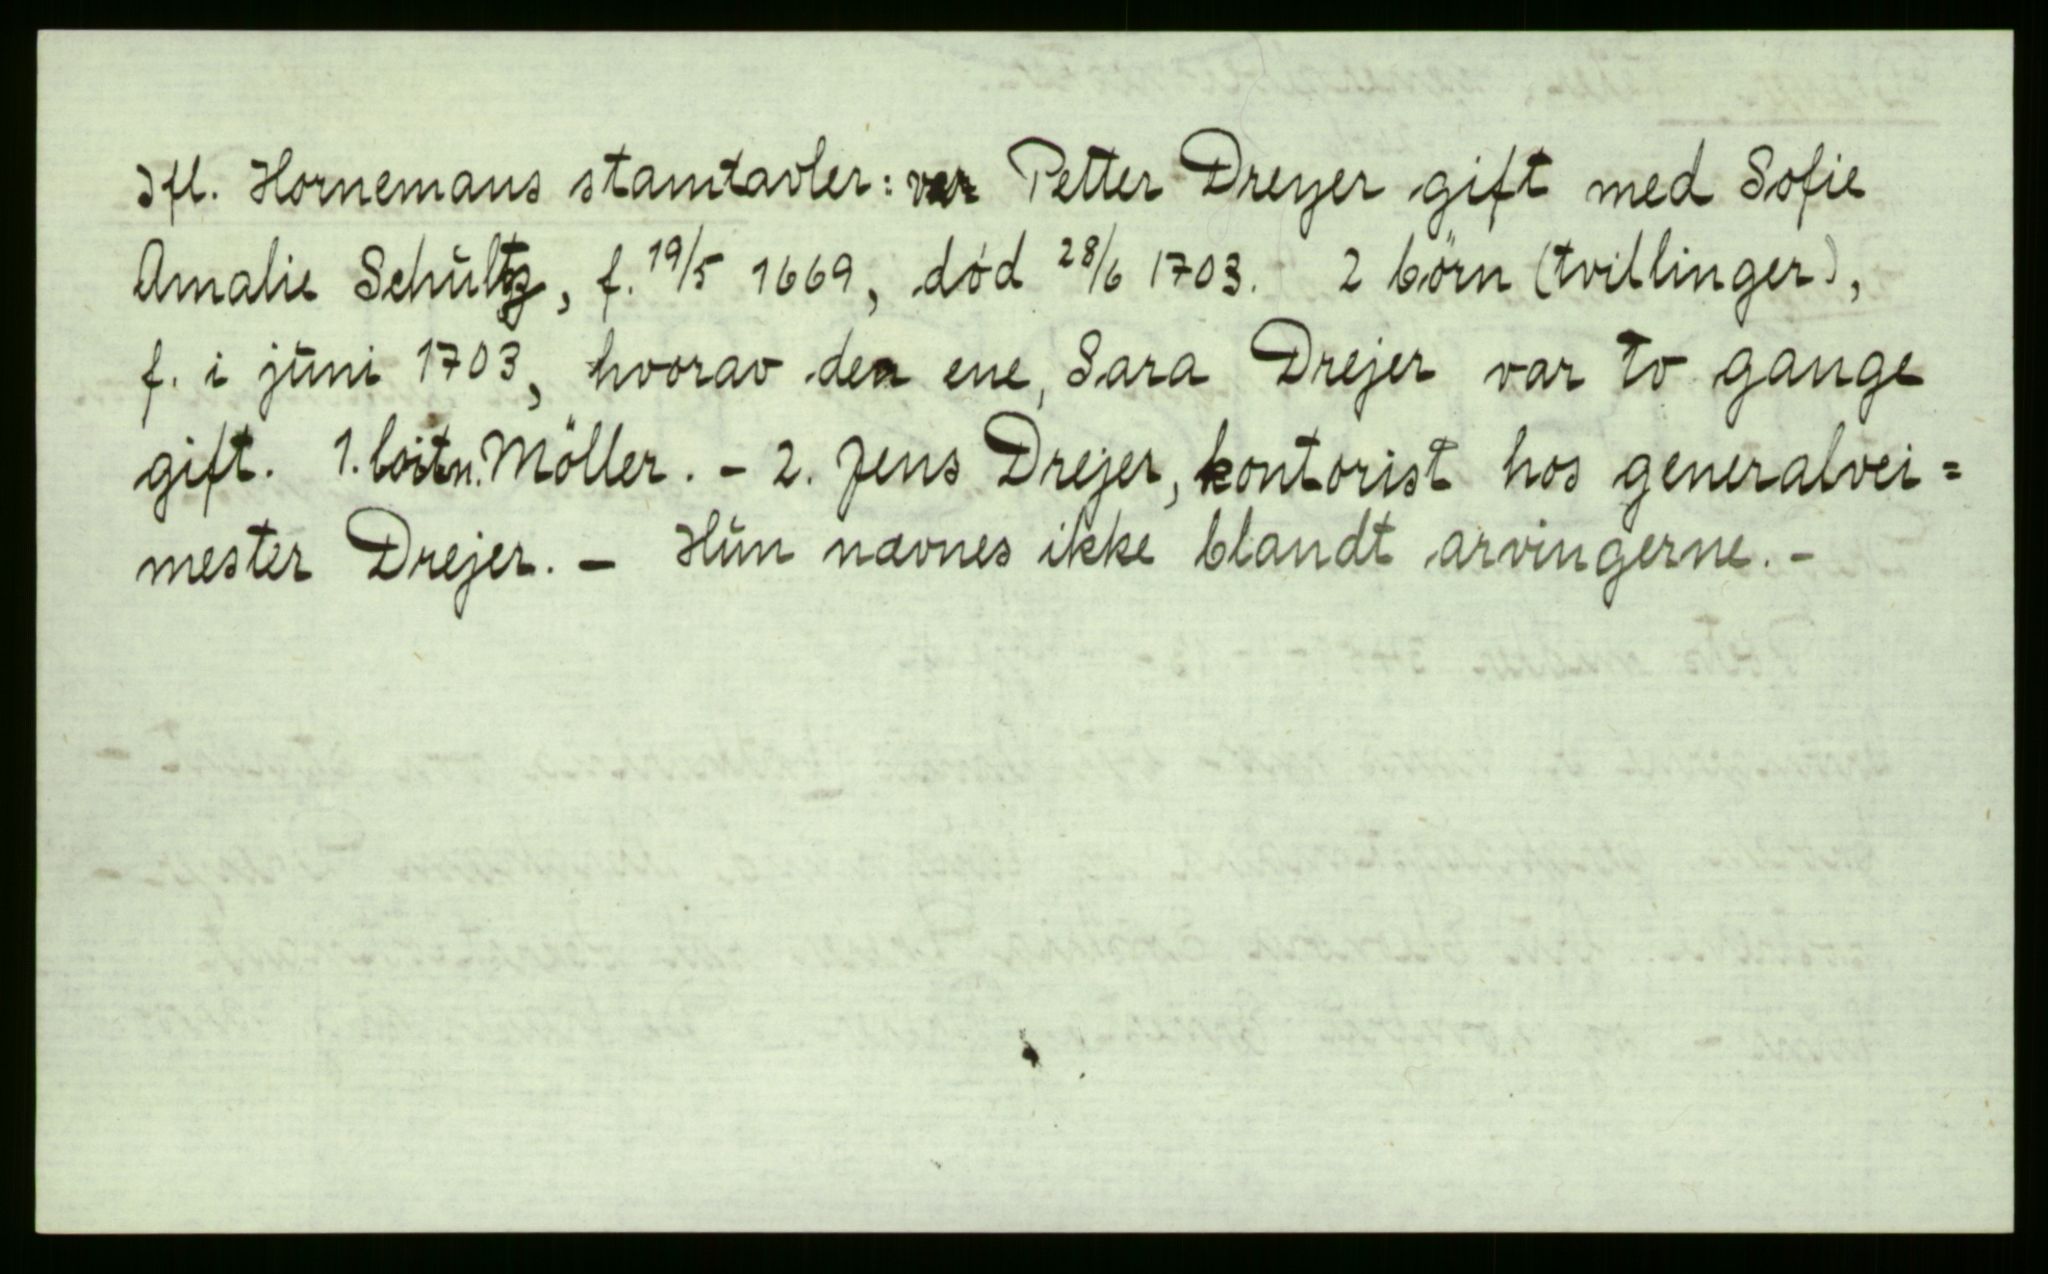 Ifl. Hornemans stamtavler: var Petter Dreyer gift med Sofie
Amalie Schültz, f. 19/5 1669, död 28/6 1703. 2 börn (tvillinger),
f. i jüni 1703, hvorav den ene, Sara Drejer var to gange
gift. 1. loitn. Möller. - 2. Jens Drejer, kontorist hos generalvei=
mester Drejer. - Hün nævnes ikke blandt arvingerne. -